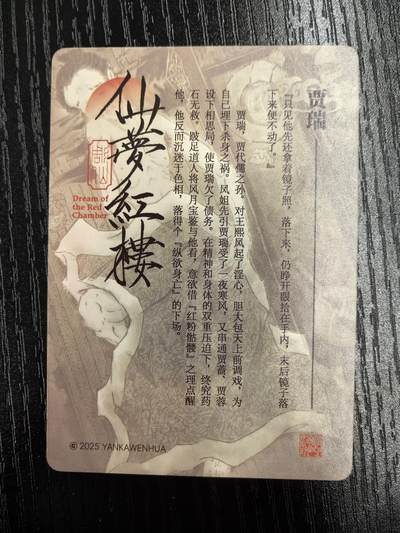 贾瑞
“只见他先还拿着镜子照，落下来，仍睁开眼拾在手内，末后镜子落
下来便不动了。”
贾瑞，贾代儒之孙。对王熙凤起了淫心，胆大包天上前调戏，为
自己埋下杀身之祸。凤姐先引贾瑞受了一夜寒风，又串通贾蔷、贾蓉
设下相思局，使贾瑞欠了债务。在精神和身体的双重压迫下，终究药
石无救。跛足道人将风月宝鉴与他看，意欲借『红粉骷髅』之理点醒
他，他反而沉迷于色相，落得个『纵欲身亡』的下场。
仙夢紅樓
Dream of
the Red
Chamber
© 2025 YANKAWENHUA